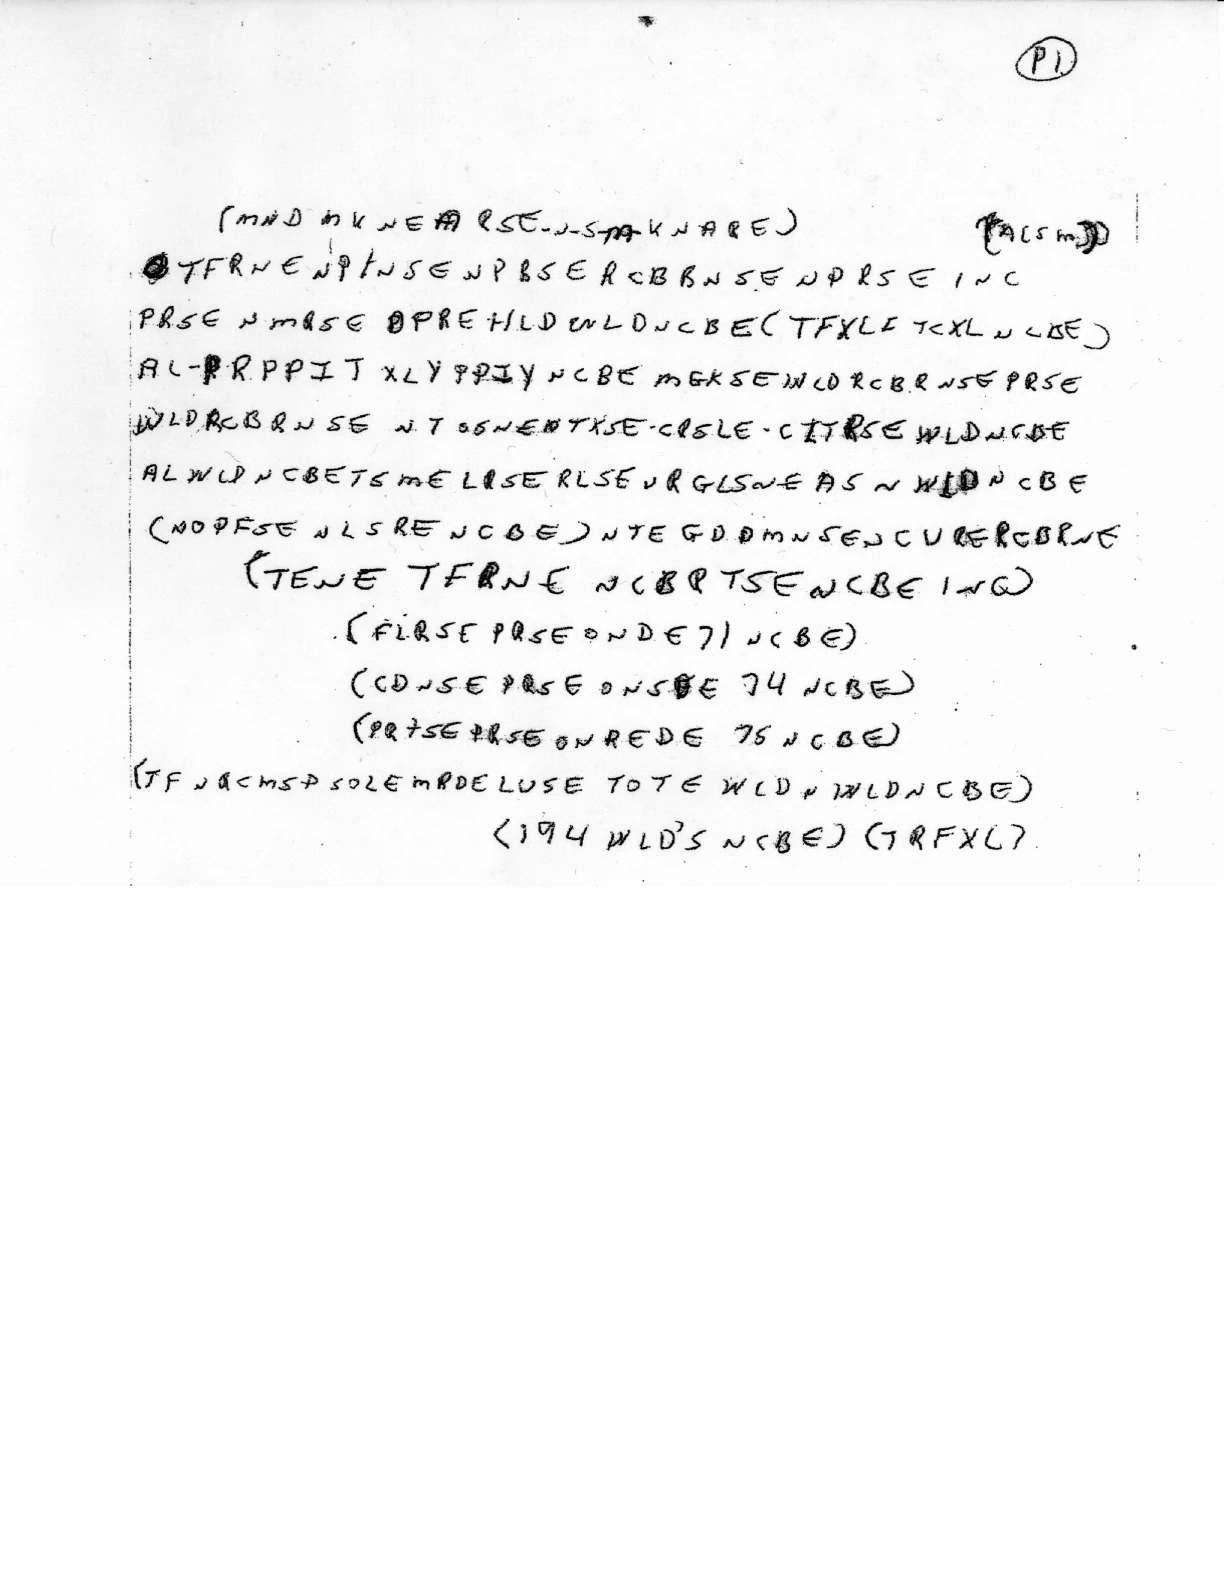 P1
(MND MKNEARSE-N-S-M-KNARE) (ACSM)
TFRNENPINSENPBSERCBBNSENPRSEINC
PRSENMRSEOPREHLDWLDNCBE(TFXLFTCXLNCBE)
AL-PRPPITXLYPPIYNCBEMGKSEWLDRCBRNSEPRSE
WLDRCBRNSENTSGNENTXSE-CRSLE-CITRSEWLDNCBE
ALWLDNCBETSMELRSERLSEURGLSNEASNWLDNCBE
(NOPFSENLSRENCBE)NTEGDDMNSENCURERCBRNE
(TENETFRNENCBRTSENCBEINC)
(FLRSEPRSEONDE71NCBE)
(CDNSEPRSEONSDE74NCBE)
(PRTSEPRSEONREDE75NCBE)
(TFNRCMSPSOLEMRDELUSETOTEWLDNWLDNCBE)
(194WLD'SNCBE)(TRFXL)